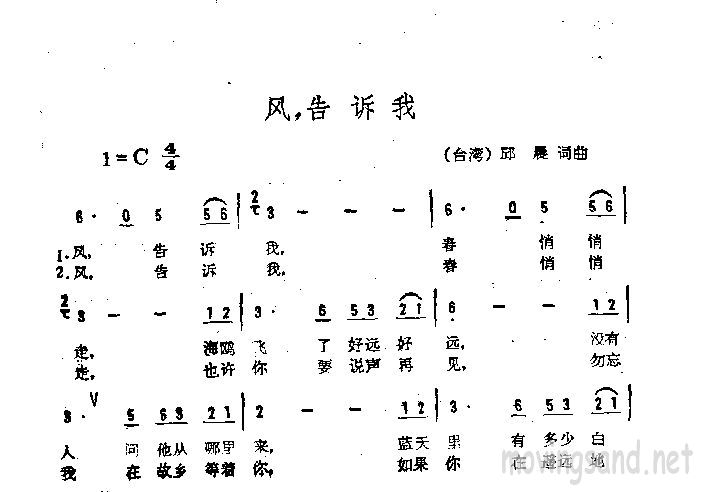 风,告诉我
1=C 4/4
(台湾) 邱晨 词曲
6· 0 5 56 | 3 - - - | 6· 0 5 56 |
1.风, 告 诉 我, 春 悄 悄
2.风, 告 诉 我, 春 悄 悄
3 - - 12 | 3· 6 53 21 | 6 - - 12 |
走, 海鸥 飞 了 好远 好 远, 没有
走, 也许 你 要 说声 再 见, 勿忘
3· V 5 63 23 | 2 - - 12 | 3· 6 53 21 |
人 问 他从 哪里 来, 蓝天 里 有 多少 白
我 在 故乡 等着 你, 如果 你 在 遥远 地
movingsand.net